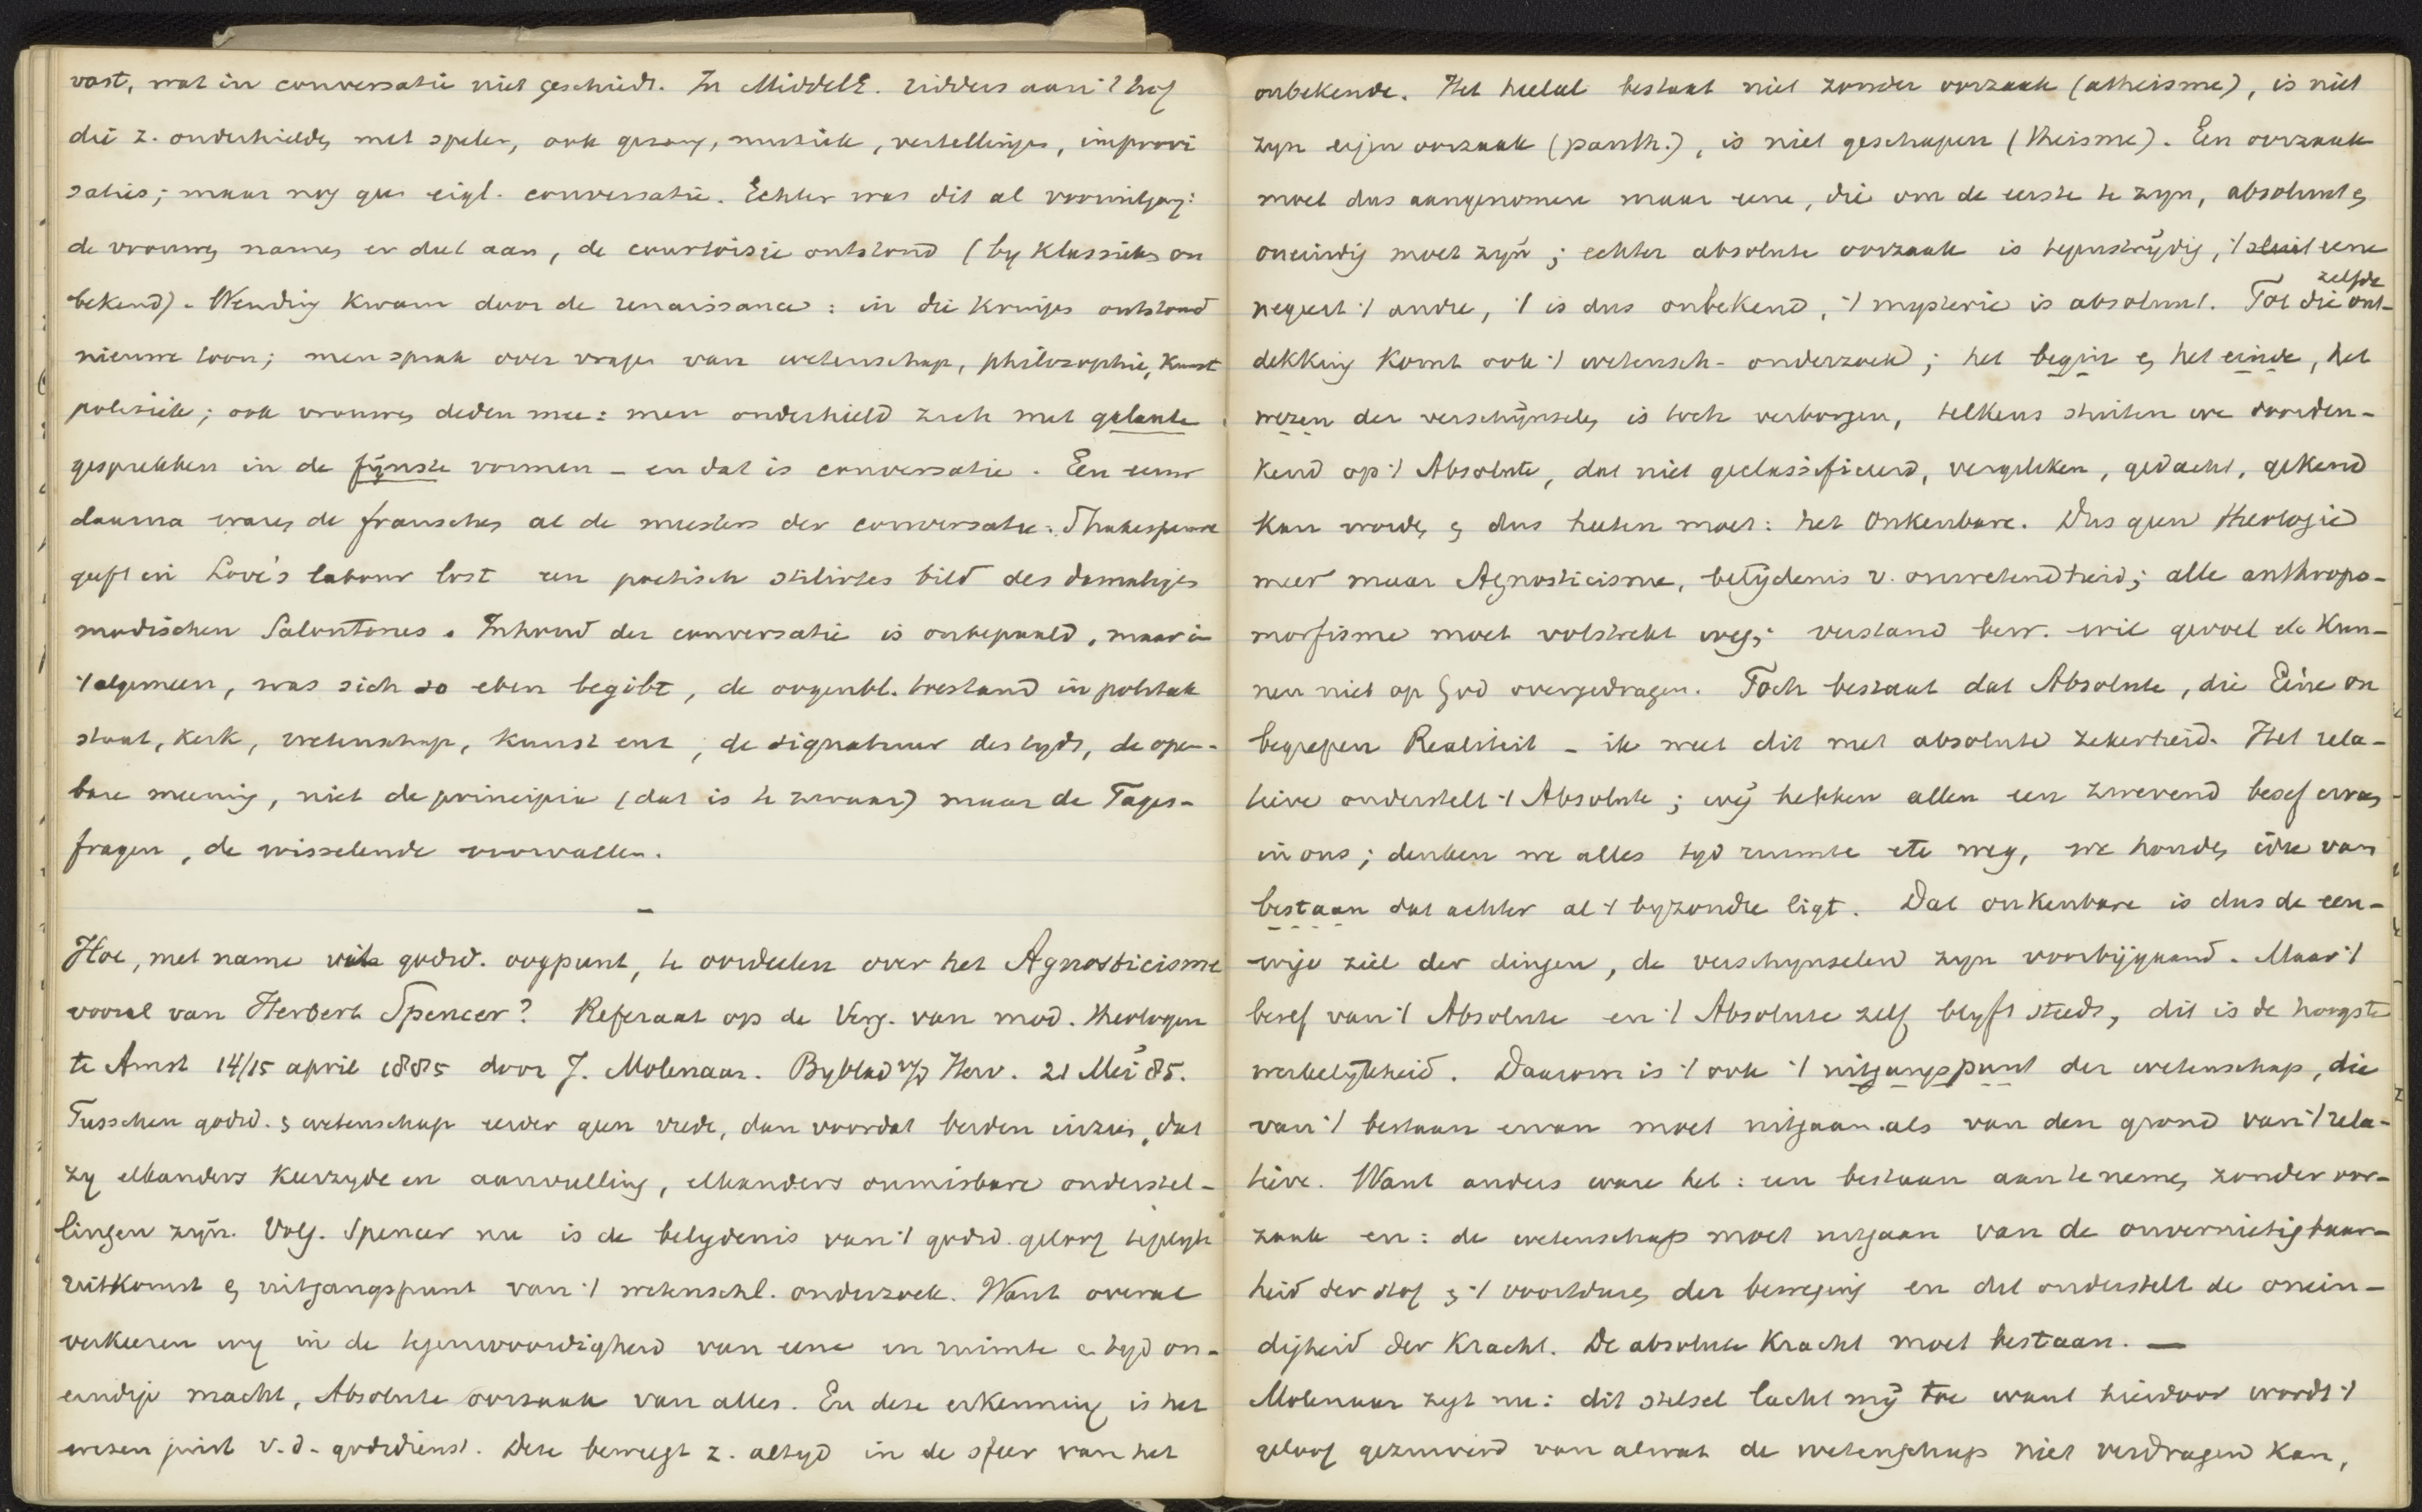 vast, wat in conversatie niet geschiedt. In MiddelE. ridders aan 't hof
die z. onderhielden met spelen, ook gezang, muziek, vertellingen, improvi
saties; maar nog geen eigl. conversatie. Echter was dit al vooruitgang:
de vrouwen namen er deel aan, de courtoisie ontstond (by klassieken on
bekend). Wending kwam door de renaissance: in die kringen ontstond
nieuwe toon; men sprak over vragen van wetenschap, philosophie, kunst
politiek; ook vrouwen deden mee: men onderhield zich met galante
gesprekken in de fijnste vormen – en dat is conversatie. Een eeuw
daarna waren de franschen al de meesters der conversatie: Shakespeare
geeft in Love's labour lost een poetisch stilirtes bild des damaligen
modischen Salontones. Inhoud der conversatie is onbepaald, maar in
't algemeen, was sich so eben begibt, de oogenbl. toestand in politiek
staat, kerk, wetenschap, kunst enz, de signatuur des tyds, de open-
bare meening, niet de principia (dat is te zwaar) maar de Tages-
fragen, de wisselende voorvallen.
–
Hoe, met name uit godsd. oogpunt, te oordeelen over het Agnosticisme
vooral van Herbert Spencer? Referaat op de Verg. van mod. theologen
te Amst 14/15 april 1885 door J. Molenaar. Byblad v/d Herv. 21 Mei 85.
Tusschen godsd. & wetenschap eerder geen vrede, dan voordat beiden inzien, dat
zy elkanders keerzyde en aanvulling, elkanders onmisbare onderstel-
lingen zyn. Volg. Spencer nu is de belydenis van 't godsd. geloof tegelyk
uitkomst & uitgangspunt van 't wetenschl. onderzoek. Want overal
verkeeren wy in de tegenwoordigheid van eene in ruimte & tyd on-
eindige macht, Absolute oorzaak van alles. En deze erkenning is het
wezen juist v. d. godsdienst. Deze beweegt z. altyd in de sfeer van het
onbekende. Het heelal bestaat niet zonder oorzaak (atheisme), is niet
zyn eigen oorzaak (panth.), is niet geschapen (theisme). Een oorzaak
moet dus aangenomen maar eene, die om de eerste te zyn, absoluut &
oneindig moet zyn; echter absolute oorzaak is tegenstrydig, 't eene
negeert 't andre, 't is dus onbekend, 't mysterie is absoluut. Tot die zelfde ont-
dekking komt ook 't wetensch- onderzoek; het begin & het einde, het
wezen der verschynselen is toch verborgen, telkens stuiten we doorden-
kend op 't Absolute, dat niet geclassificeerd, vergeleken, gedacht, gekend
kan worden & dus heeten moet: het Onkenbare. Dus geen theologie
meer maar Agnosticisme, belydenis v. onwetendheid; alle anthropo-
morfisme moet volstrekt weg; verstand bew. wil gevoel etc kun-
nen niet op God overgedragen. Toch bestaat dat Absolute, die Eéne on
begrepen Realiteit – ik weet dit met absolute zekerheid. Het rela-
tieve onderstelt 't Absolute; wy hebben allen een zwevend besef ervan
in ons; denken we alles tyd ruimte etc weg, we houden idee van
bestaan dat achter al 't byzondre ligt. Dat onkenbare is dus de eeu-
wige ziel der dingen, de verschynselen zyn voorbygaand. Maar 't
besef van 't Absolute en 't Absolute zelf blyft steeds, dit is de hoogste
werkelykheid. Daarom is 't ook 't uitgangspunt der wetenschap, die
van 't bestaan ervan moet uitgaan als van den grond van 't rela-
tieve. Want anders ware het: een bestaan aan te nemen zonder oor-
zaak en: de wetenschap moet uitgaan van de onvernietigbaar-
heid der stof & 't voortduren der beweging en dat onderstelt de onein-
digheid der kracht. De absolute kracht moet bestaan. —
Molenaar zegt nu: dit stelsel lacht my toe want hierdoor wordt 't
geloof gezuiverd van alwat de wetenschap niet verdragen kan,